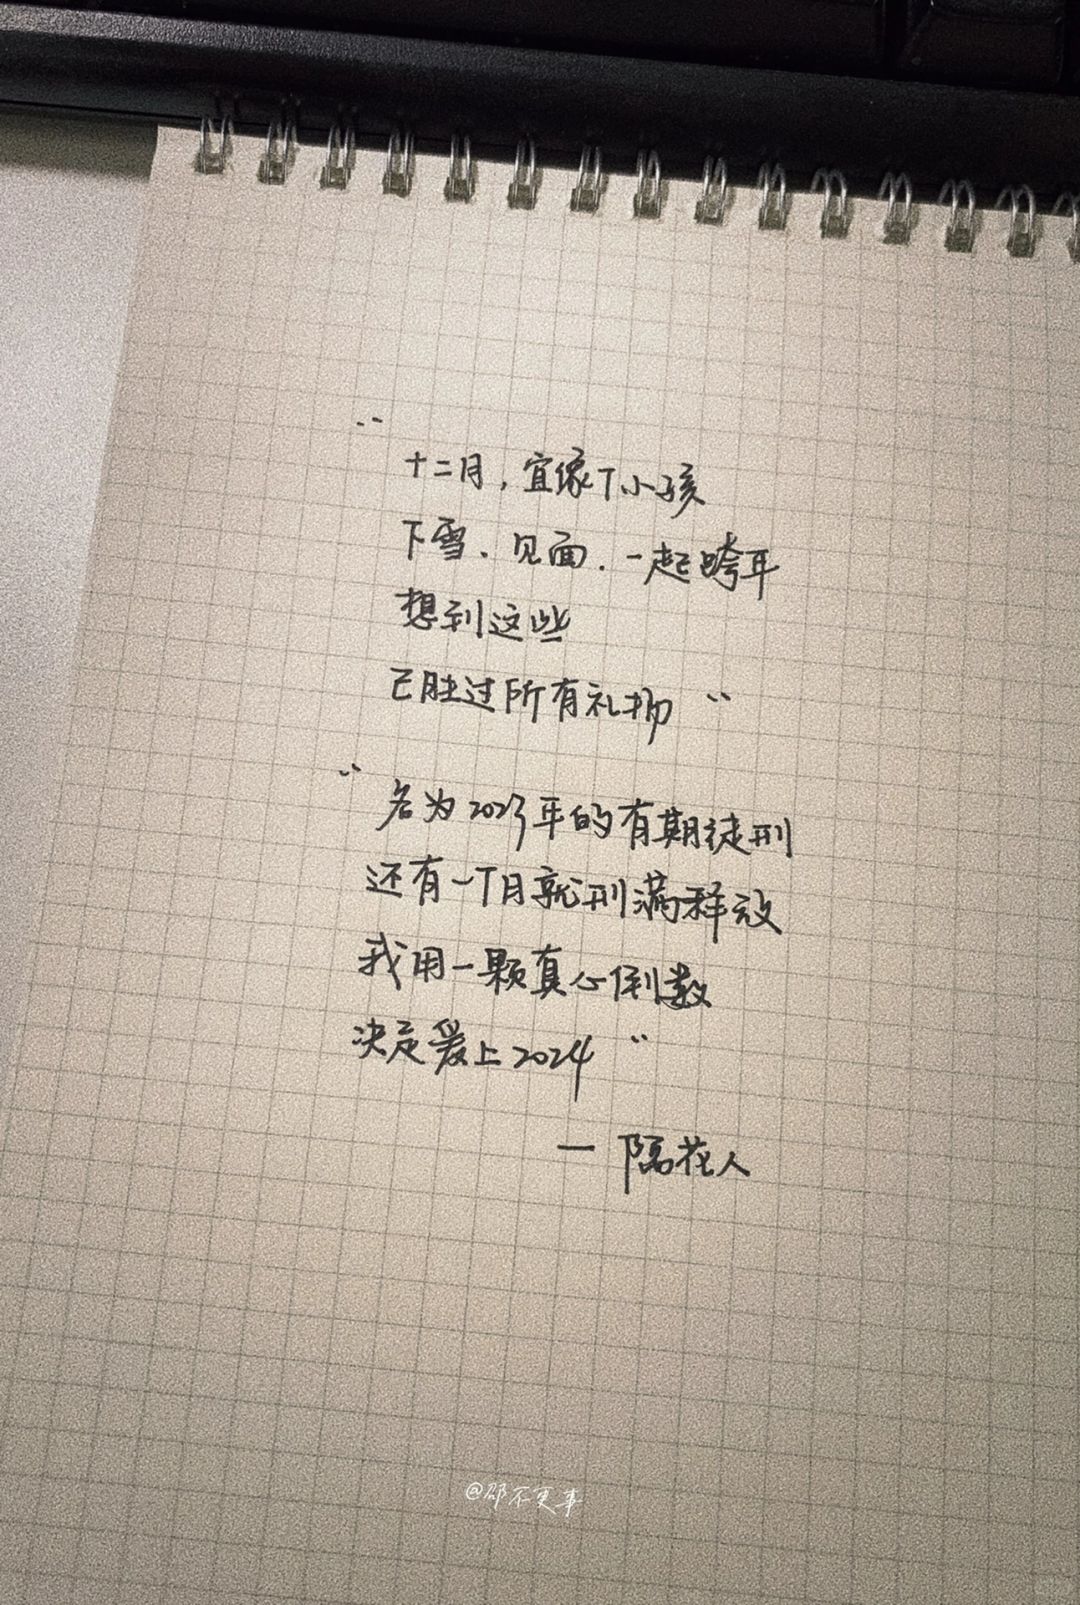 “
十二月，宜像个小孩
下雪、见面、一起跨年
想到这些
已胜过所有礼物”
“
名为2023年的有期徒刑
还有一个月就刑满释放
我用一颗真心倒数
决定爱上2024”
— 隔花人
@邵不更事